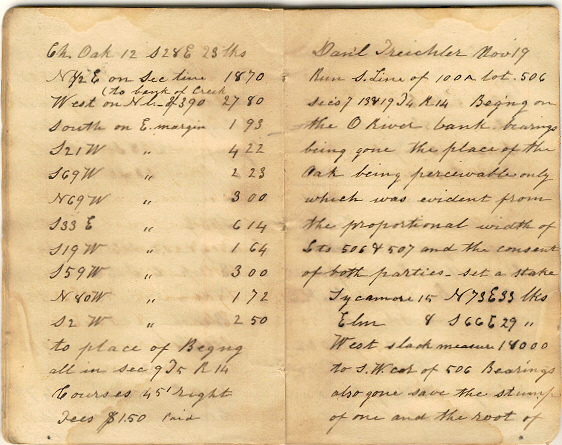 Ch. Oak 12 S28E 23 lks
N1/2E on Sec line 1870
(to bank of Creek
West on N.L. of 390 27 80
South on E. margin 1 93
S21W " 4 22
S69W " 2 23
N69W " 3 00
S33 E " 6 14
S19 W " 1 64
S59W " 3 00
N80W " 1 72
S2 W " 2 50
to place of Begng
all in sec 9 T5 R14
Courses 45' right
Fees $1.50 Paid
Danl Treichler Nov 19
Run S. Line of 100 A lot. 506
secs 7 13&19 T4 R14 Beg'ng on
the O River bank, bearings
being gone the place of the
Oak being perceivable only
which was evident from
the proportional width of
Lts 506 & 507 and the consent
of both parties - set a stake
Sycamore 15 N73E33 lks
Elm 8 S66E29 "
West slack measure 18000
to S.W cor of 506 Bearings
also gone save the stump
of one and the root of